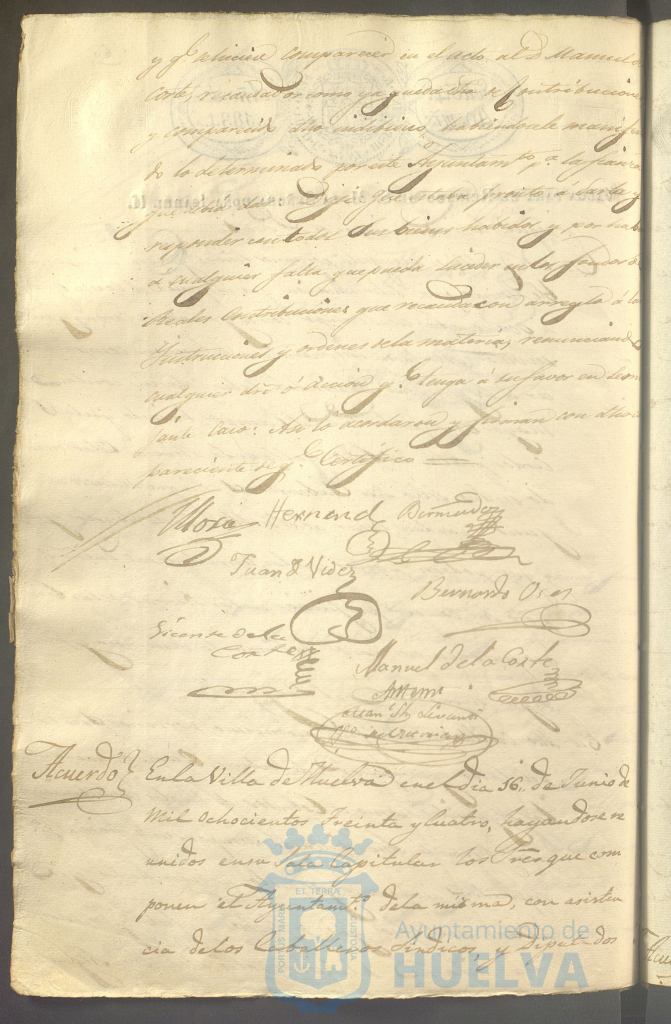 y qe hiciera comparecer en el acto al D Manuel de la
Corte, recaudador como ya queda dho de Contribuciones
y comparecido dho individuo, habiendosele manifesta
do lo determinado por este Ayuntamto pa la fianza
que debia Dijo: que estaba pronto a darla y
responder con todos sus bienes habidos y por haber
á cualquier falta que pueda suceder en los
Reales Contribuciones que recauda con arreglo á las
Ynstrucciones y ordenes de la materia, renunciando
cualquier dro ó accion qe tenga á su favor en seme
jante caso: Asi lo acordaron y firman con dho com
pareciente de qe Certifico =
Mora Hernand Bermudez
Juan d Videz
Bernardo
Vicente de la
Corte
Manuel de la Corte
Antemi
Acuerdo
En la Villa de Huelva en el dia 16,, de Junio de
Mil ochocientos Treinta y Cuatro, hayandose re
unidos en su Sala Capitular los Sres que com
ponen el Ayuntamto de la misma, con asisten
cia de los Caballeros Sindicos, y Diputados
PORTUS MARIS
ET TERRÆ
CUSTODIA
Ayuntamiento de
HUELVA